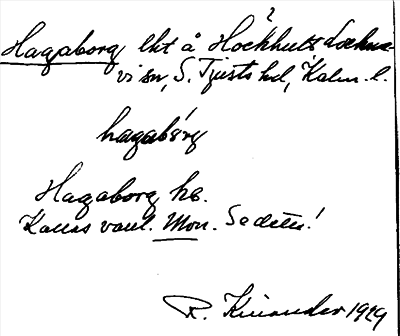 ?
Hagaborg lht å Hockhult Locknevi sn, S. Tjusts hd, Kalm. l.
hagabórg
Hagaborg hs.
Kallas vanl. Mon. Se detta!
R. Kinander 1929